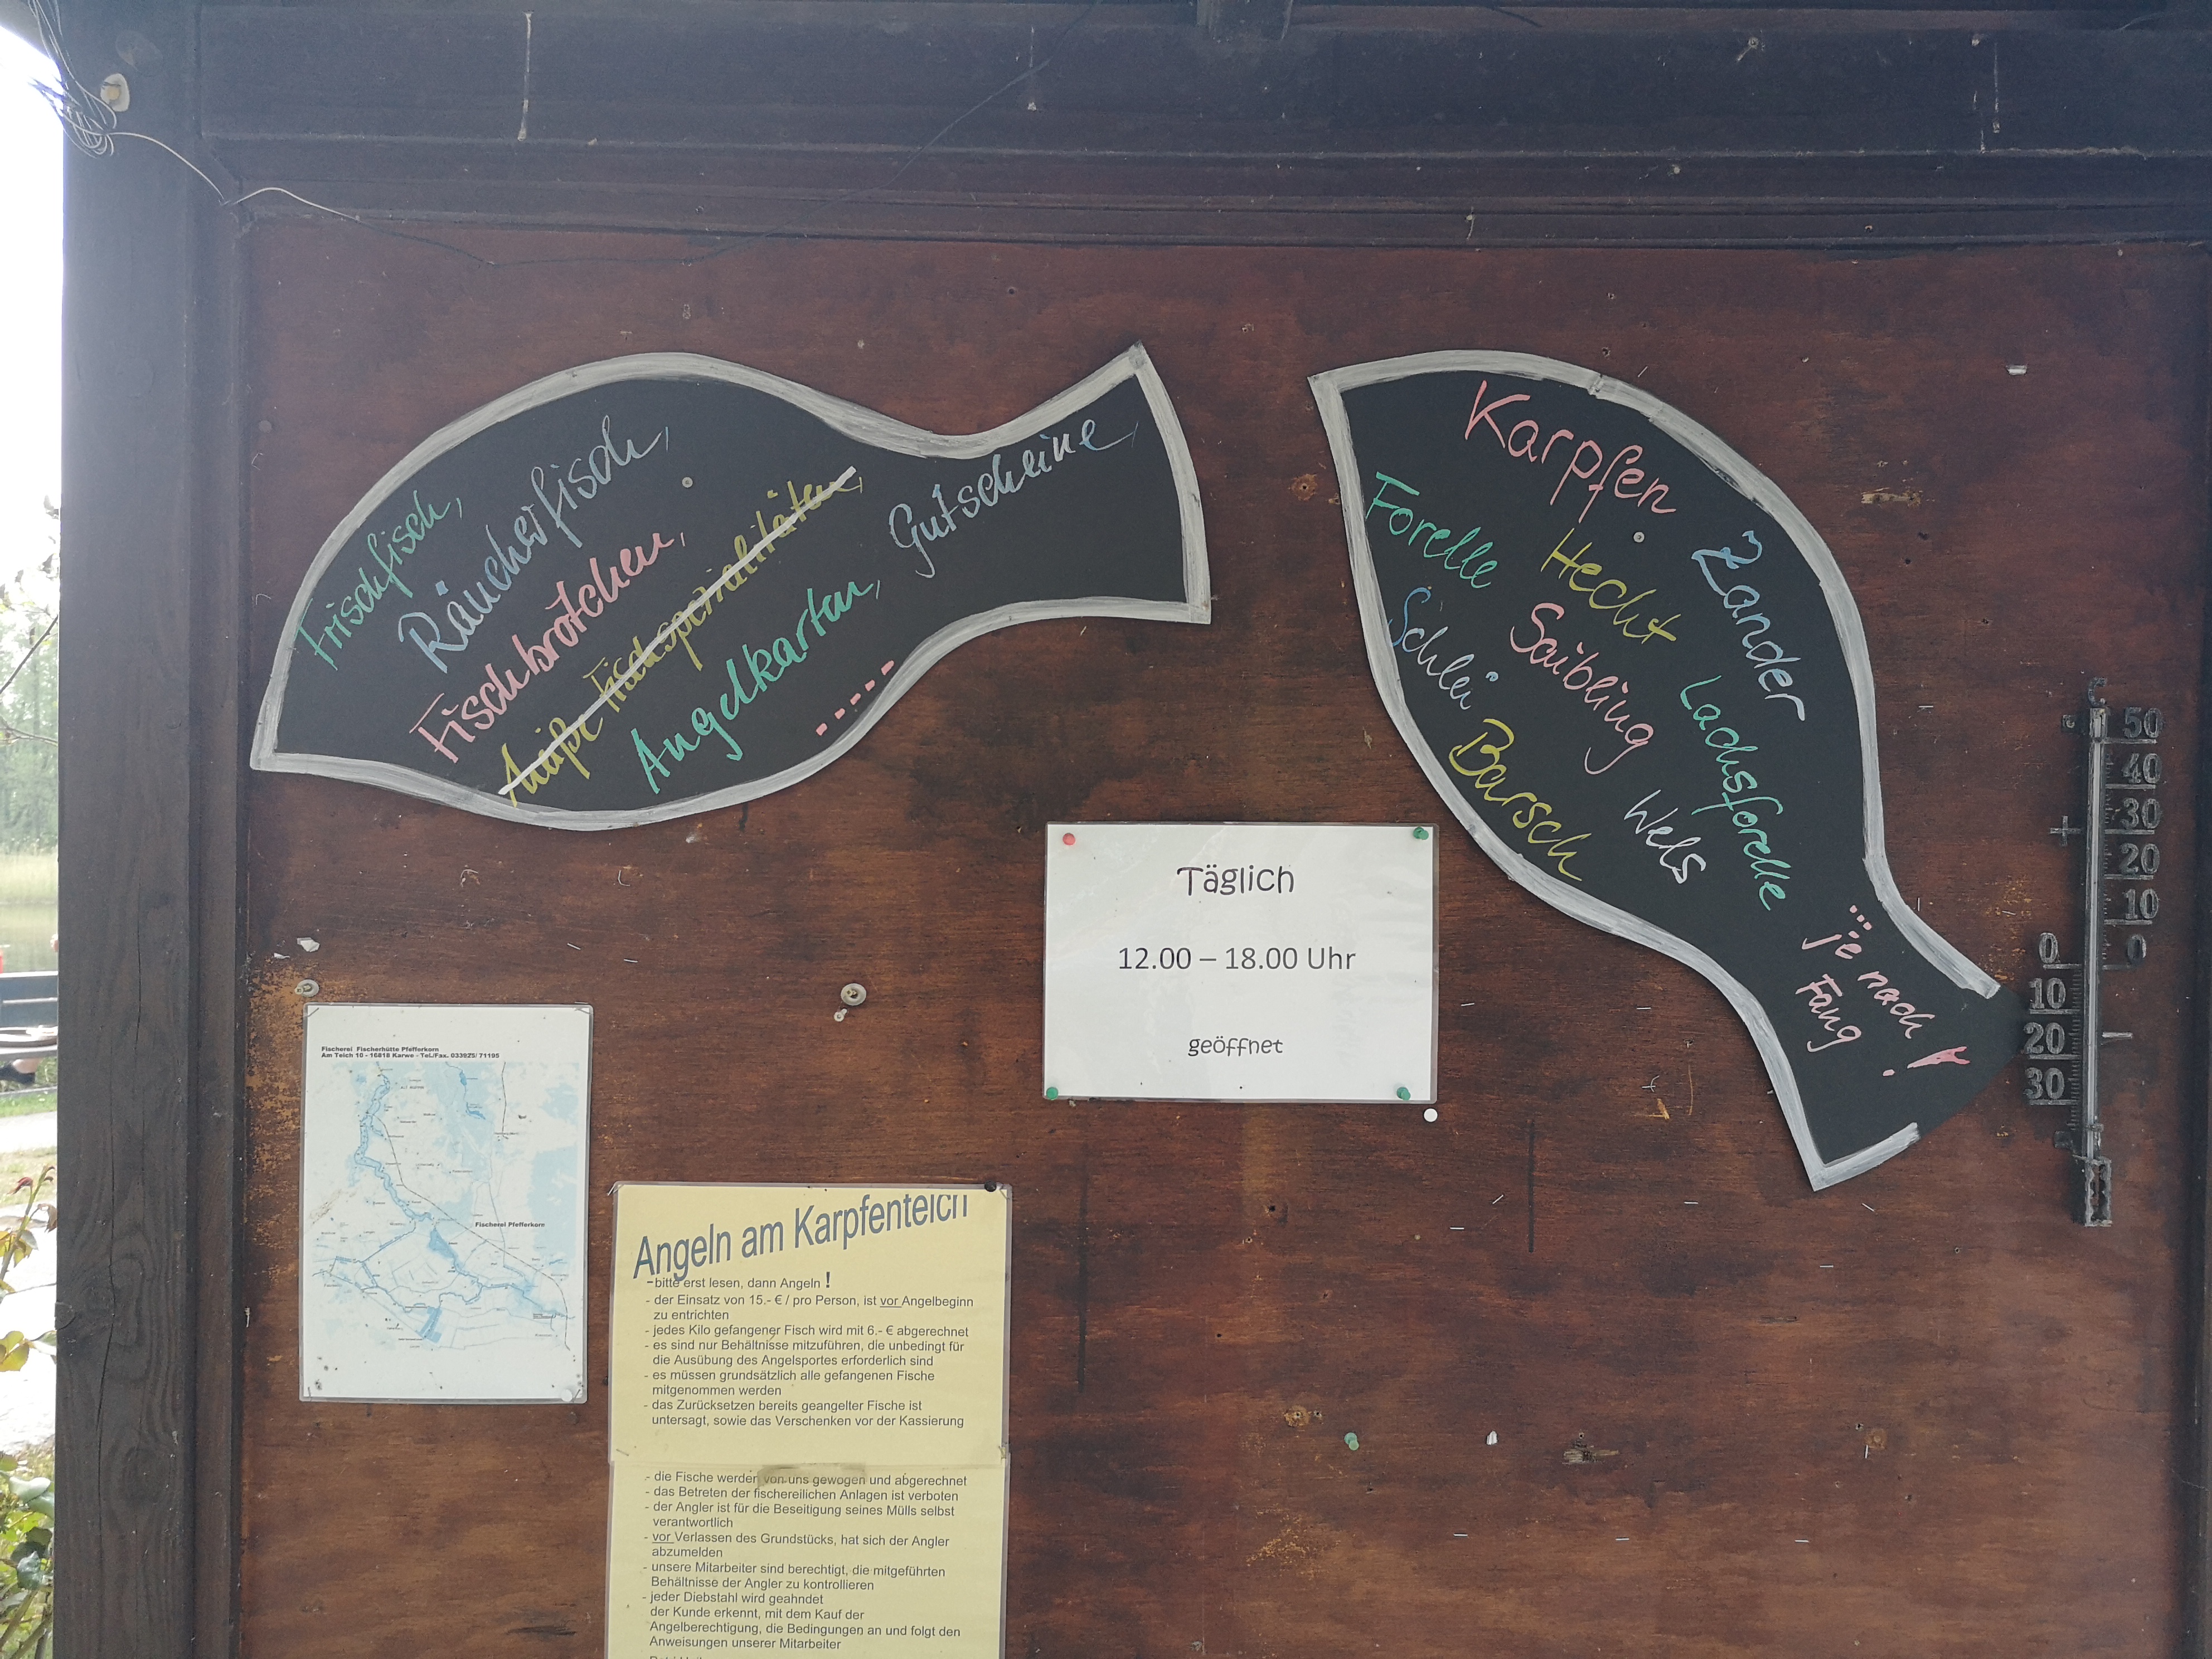 Frischfisch,
Räucherfisch,
Fischbrötchen,
Fischspezialitäten,
Angelkarten, Gutscheine,
.....
Karpfen
Forelle Hecht Zander
Schlei Saibling Lachsforelle
Barsch Wels
... je nach
Fang !
Täglich
12.00 – 18.00 Uhr
geöffnet
C
50
40
30
20
10
0 0
10
20
30
Fischerei Fischerhütte Pfefferkorn
Am Teich 10 - 16818 Karwe - Tel./Fax. 033925/ 71195
Fischerei Pfefferkorn
Angeln am Karpfenteich
-bitte erst lesen, dann Angeln !
- der Einsatz von 15.- € / pro Person, ist vor Angelbeginn
zu entrichten
- jedes Kilo gefangener Fisch wird mit 6.- € abgerechnet
- es sind nur Behältnisse mitzuführen, die unbedingt für
die Ausübung des Angelsportes erforderlich sind
- es müssen grundsätzlich alle gefangenen Fische
mitgenommen werden
- das Zurücksetzen bereits geangelter Fische ist
untersagt, sowie das Verschenken vor der Kassierung
- die Fische werden von uns gewogen und abgerechnet
- das Betreten der fischereilichen Anlagen ist verboten
- der Angler ist für die Beseitigung seines Mülls selbst
verantwortlich
- vor Verlassen des Grundstücks, hat sich der Angler
abzumelden
- unsere Mitarbeiter sind berechtigt, die mitgeführten
Behältnisse der Angler zu kontrollieren
- jeder Diebstahl wird geahndet
der Kunde erkennt, mit dem Kauf der
Angelberechtigung, die Bedingungen an und folgt den
Anweisungen unserer Mitarbeiter